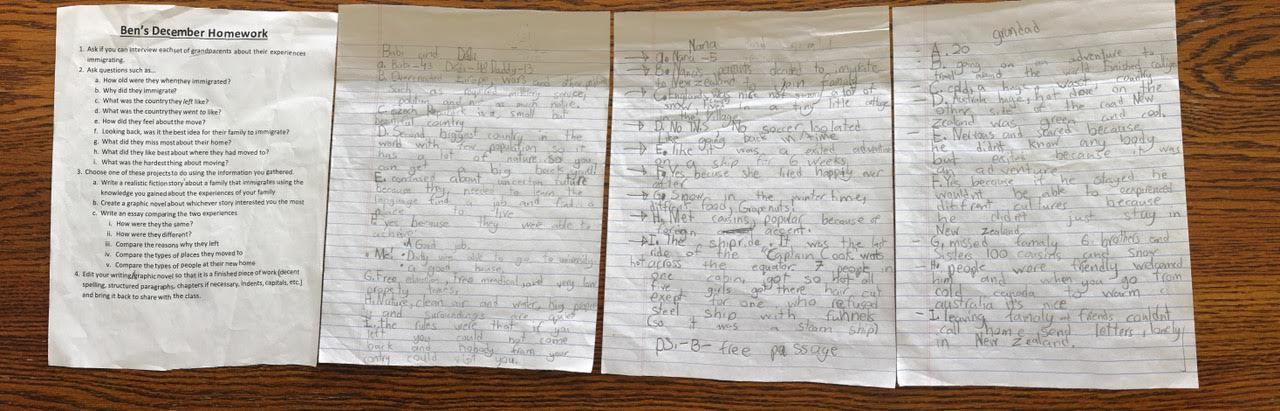 Ben's December Homework
1. Ask if you can interview each set of grandparents about their experiences
immigrating.
2. Ask questions such as...
a. How old were they when they immigrated?
b. Why did they immigrate?
c. What was the country they left like?
d. What was the country they went to like?
e. How did they feel about the move?
f. Looking back, was it the best idea for their family to immigrate?
g. What did they miss most about their home?
h. What did they like best about where they had moved to?
i. What was the hardest thing about moving?
3. Choose one of these projects to do using the information you gathered.
a. Write a realistic fiction story about a family that immigrates using the
knowledge you gained about the experiences of your family
b. Create a graphic novel about whichever story interested you the most
c. Write an essay comparing the two experiences
i. How were they the same?
ii. How were they different?
iii. Compare the reasons why they left
iv. Compare the types of places they moved to
v. Compare the types of people at their new home
4. Edit your writing/graphic novel so that it is a finished piece of work (decent
spelling, structured paragraphs, chapters if necessary, indents, capitals, etc.)
and bring it back to share with the class.
Babi and
a. Babi-43
such as required military service,
polution and not as much nature.
is a small but
beautiful country
D. Second biggest country in the
word with few population so it
has a lot of nature so you
can get a big back yard
E. confused about uncertain future
because they needed to learn the
language find a job and find a
place to live
F yes because they were able to
achieve
• A Good job.
• Me! • Daddy was able to go to university
• a good house
G. Free education, free medical and very low
property taxes
H. Nature, clean air and water, big property
and suroundings are quiet
I. the rules were that if you
left you could not come
back and nobody from your
contry could visit you.
Nana
a. Nana -5
B. Nana's parents decided to
New Zealand to join family
a lot of
snow living in a tiny little cottage
in the village
D. No TVS No soccer Isolated
like going back in time
E. like it was a exited adventure
on a ship for 6 weeks
F. yes becuse she lived happily ever
after
G. Snow in the winter times,
different food, Grapenuts!
H. Met cousins, popular because of
foreign accent.
I. The ship ride. It was the last
ride of the "Captain Cook" was
hot across the equator. 7 people in
one cabin, got so hot all
five girls got there hair cut
exept for one who refused
steel ship with funnels
(so it was a steam ship)
ps.-B- free passage
grandad
A. 20
B. going on an adventure to
travel around the world finished college
C. cold, a huge, vast country
D. Australia huge, hot drove on the
other side of the road New
Zealand was green and cool.
E. Nervous and scared because
he didn't know any body
but exited because it was
an adventure
F. yes because if he stayed he
wouldn't be able to
different cultures because
he didn't just stay in
New Zealand.
G. missed famaly 6 brothers and
sisters 100 cousins and snow
H. people were friendly welcomed
him and when you go from
cold canada to warm
australia it's nice
I. leaving famaly + friends couldn't
call home, send letters, lonely
in New Zealand.